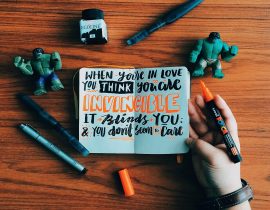 WHEN YOU'RE IN LOVE
YOU THINK YOU ARE
INVINCIBLE
IT Blinds YOU:
& YOU don't SEEM to Care